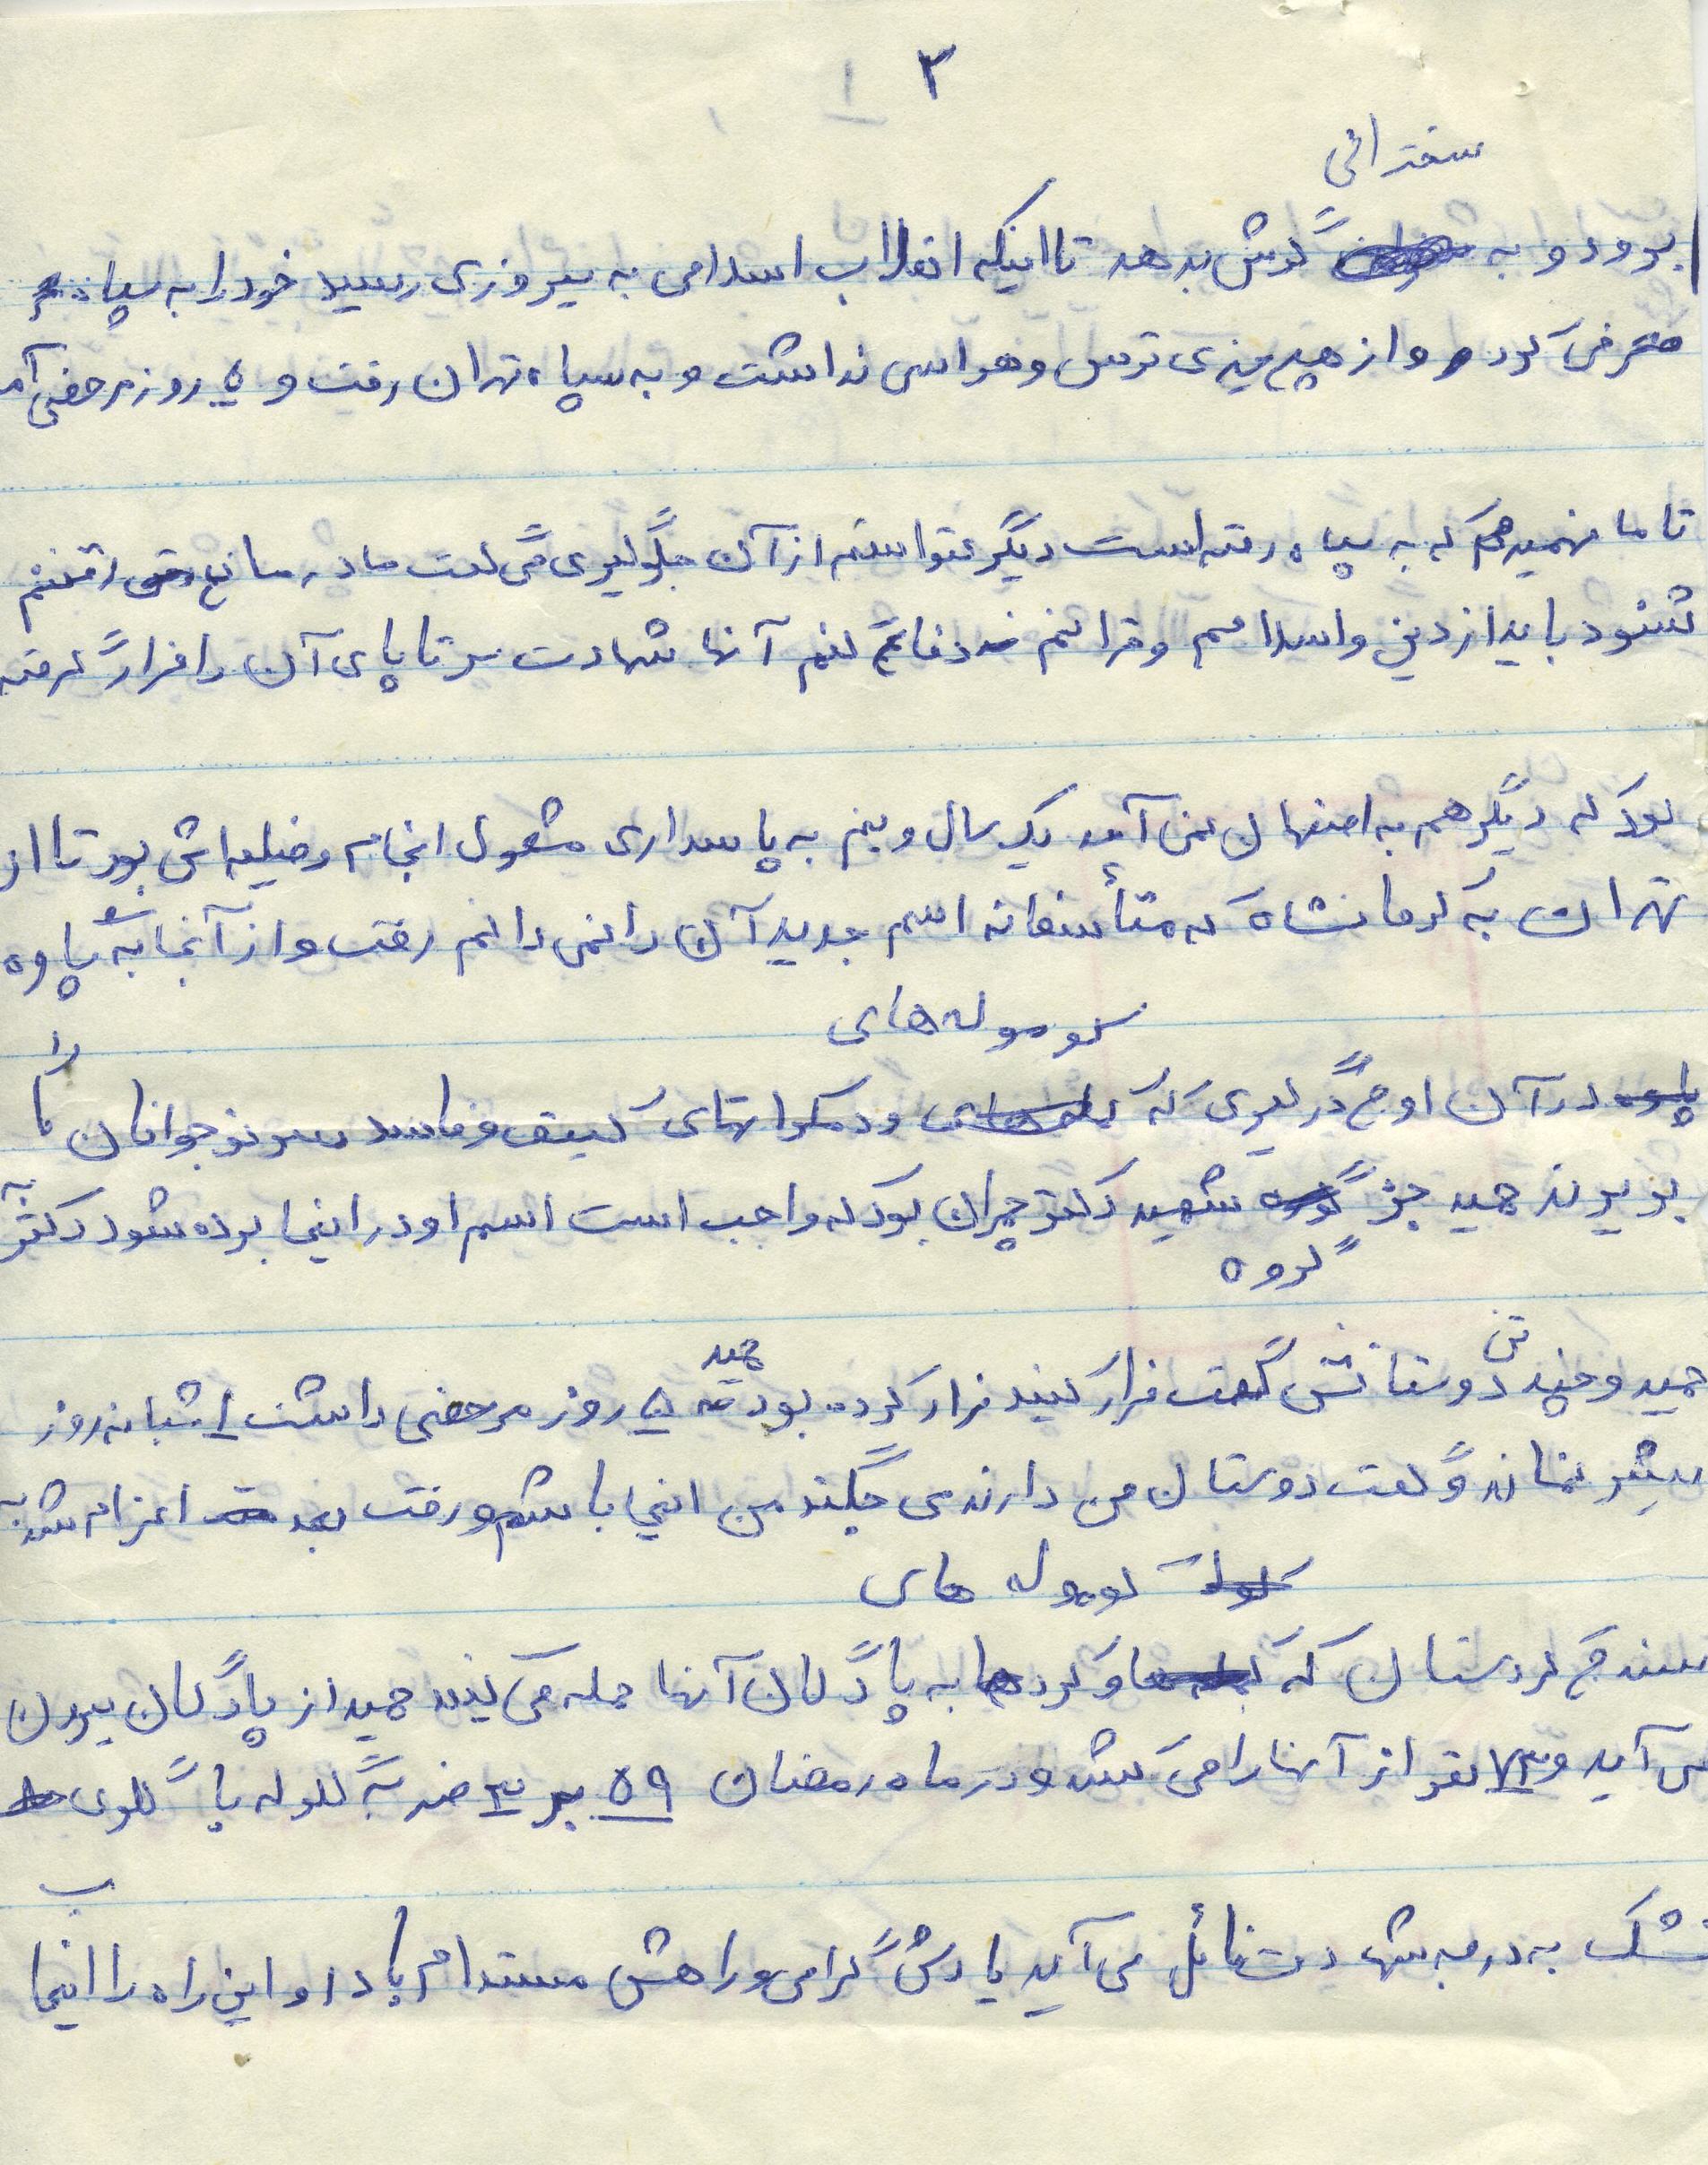 ۳
سخنرانی
برود و به گوش بدهد تا اینکه انقلاب اسلامی به پیروزی رسید خود را به سپاه
معرفی کرد و از هیچ چیزی ترس و هراسی نداشت و به سپاه تهران رفت و ۵ روز مرخصی آمد
تا ما فهمیدیم که به سپاه رفته است دیگر نتوانستم از آن جلوگیری گفت مادر مانع رفتنم
نشود باید از دین و اسلامم و قرآنم دفاع کنم آنها شهادت سر تا پای آن را فرا گرفته
بود که دیگر هم به اصفهان نمی آمد یک سال و نیم به پاسداری مشغول انجام وظیفه اش بود تا از
تهران به کرمانشاه که متأسفانه اسم جدید آن را نمی دانم رفت و از آنجا به پاوه
کوموله های
در آن اوج درگیری که و دمکراتهای کثیف و فاسد سر نوجوانان ما را
بریدند حمید جز گروه شهید دکتر چمران بود که واجب است اسم او در اینجا برده شود دکتر به
گروه
حمید و چند تن دوستانش گفت فرار کنید فرار کرده بود حمید ۵ روز مرخصی داشت ۱ شبانه روز
بیشتر نماند و گفت دوستان من دارند می جنگند من اینجا باشم و رفت بعد اعزام شد به
کومله های
سنندج کردستان که و کردها به پادگان آنها حمله می کنند حمید از پادگان بیرون
می آید و ۷۳ نفر از آنها را می کشد و در ماه رمضان ۵۹ بر ۳ ضربه گلوله با گلوی
خشک به درجه شهادت نائل می آید یادش گرامی و راهش مستدام باد او این راه را اینجا